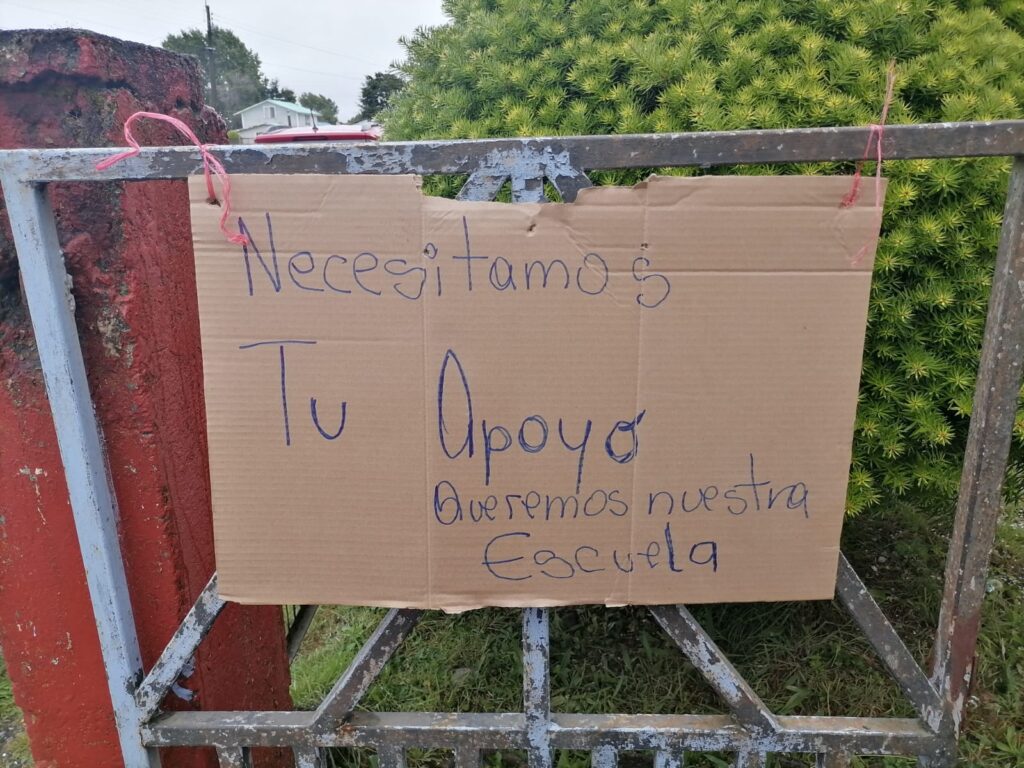 Necesitamos
Tu Apoyo
Queremos nuestra
Escuela